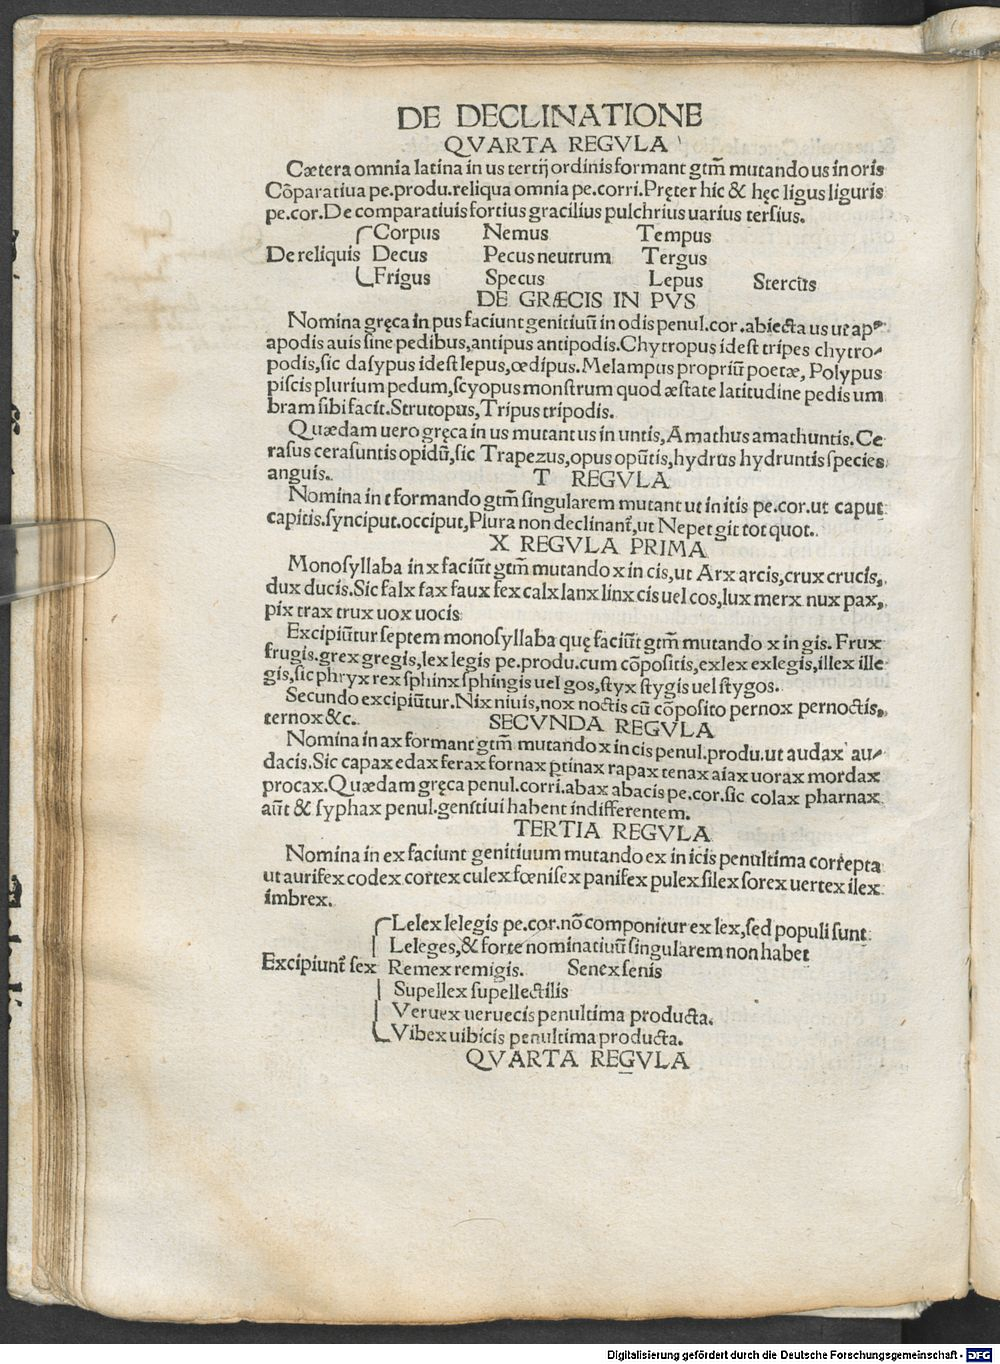 DE DECLINATIONE
QVARTA REGVLA
Cætera omnia latina in us tertij ordinis formant gtm̄ mutando us in oris
Cōparatiua pe.produ.reliqua omnia pe.corri.Pręter hic & hęc ligus liguris
pe.cor.De comparatiuis fortius gracilius pulchrius uarius tersius.
Corpus Nemus Tempus
De reliquis Decus Pecus neutrum Tergus
Frigus Specus Lepus Stercus
DE GRÆCIS IN PVS
Nomina gręca in pus faciunt genitiuū in odis penul.cor.abiecta us ut ap
apodis auis sine pedibus,antipus antipodis.Chytropus idest tripes chytro
podis,sic dasypus idest lepus,œdipus.Melampus propriū poetæ, Polypus
piscis plurium pedum,scyopus monstrum quod æstate latitudine pedis um
bram sibi facit.Strutopus,Tripus tripodis.
Quædam uero gręca in us mutant us in untis,Amathus amathuntis.Ce
rasus cerasuntis opidū,sic Trapezus,opus opūtis,hydrus hydruntis species
anguis. T REGVLA
Nomina in t formando gtm̄ singularem mutant ut in itis pe.cor.ut caput
capitis.synciput.occiput,Plura non declinant̄,ut Nepet git tot quot.
X REGVLA PRIMA
Monosyllaba in x faciūt gtm̄ mutando x in cis,ut Arx arcis,crux crucis,
dux ducis.Sic falx fax faux fex calx lanx linx cis uel cos,lux merx nux pax,
pix trax trux uox uocis
Excipiūtur septem monosyllaba quę faciūt gtm̄ mutando x in gis. Frux
frugis.grex gregis,lex legis pe.produ.cum cōpositis,exlex exlegis,illex ille
gis,sic phryx rex sphinx sphingis uel gos,styx stygis uel stygos.
Secundo excipiūtur.Nix niuis,nox noctis cū cōposito pernox pernoctis,
ternox &c. SECVNDA REGVLA
Nomina in ax formant gtm̄ mutando x in cis penul.produ.ut audax au
dacis.Sic capax edax ferax fornax ꝑtinax rapax tenax aiax uorax mordax
procax.Quædam gręca penul.corri.abax abacis pe.cor.sic colax pharnax
aūt & syphax penul.genitiui habent indifferentem.
TERTIA REGVLA
Nomina in ex faciunt genitiuum mutando ex in icis penultima correpta
ut aurifex codex cortex culex fœnisex panifex pulex silex sorex uertex ilex
imbrex.
Lelex lelegis pe.cor.nō componitur ex lex,sed populi sunt
Leleges,& forte nominatiuū singularem non habet
Excipiunt̄ sex Remex remigis. Senex senis
Supellex supellectilis
Veruex ueruecis penultima producta.
Vibex uibicis penultima producta.
QVARTA REGVLA
Digitalisierung gefördert durch die Deutsche Forschungsgemeinschaft - DFG